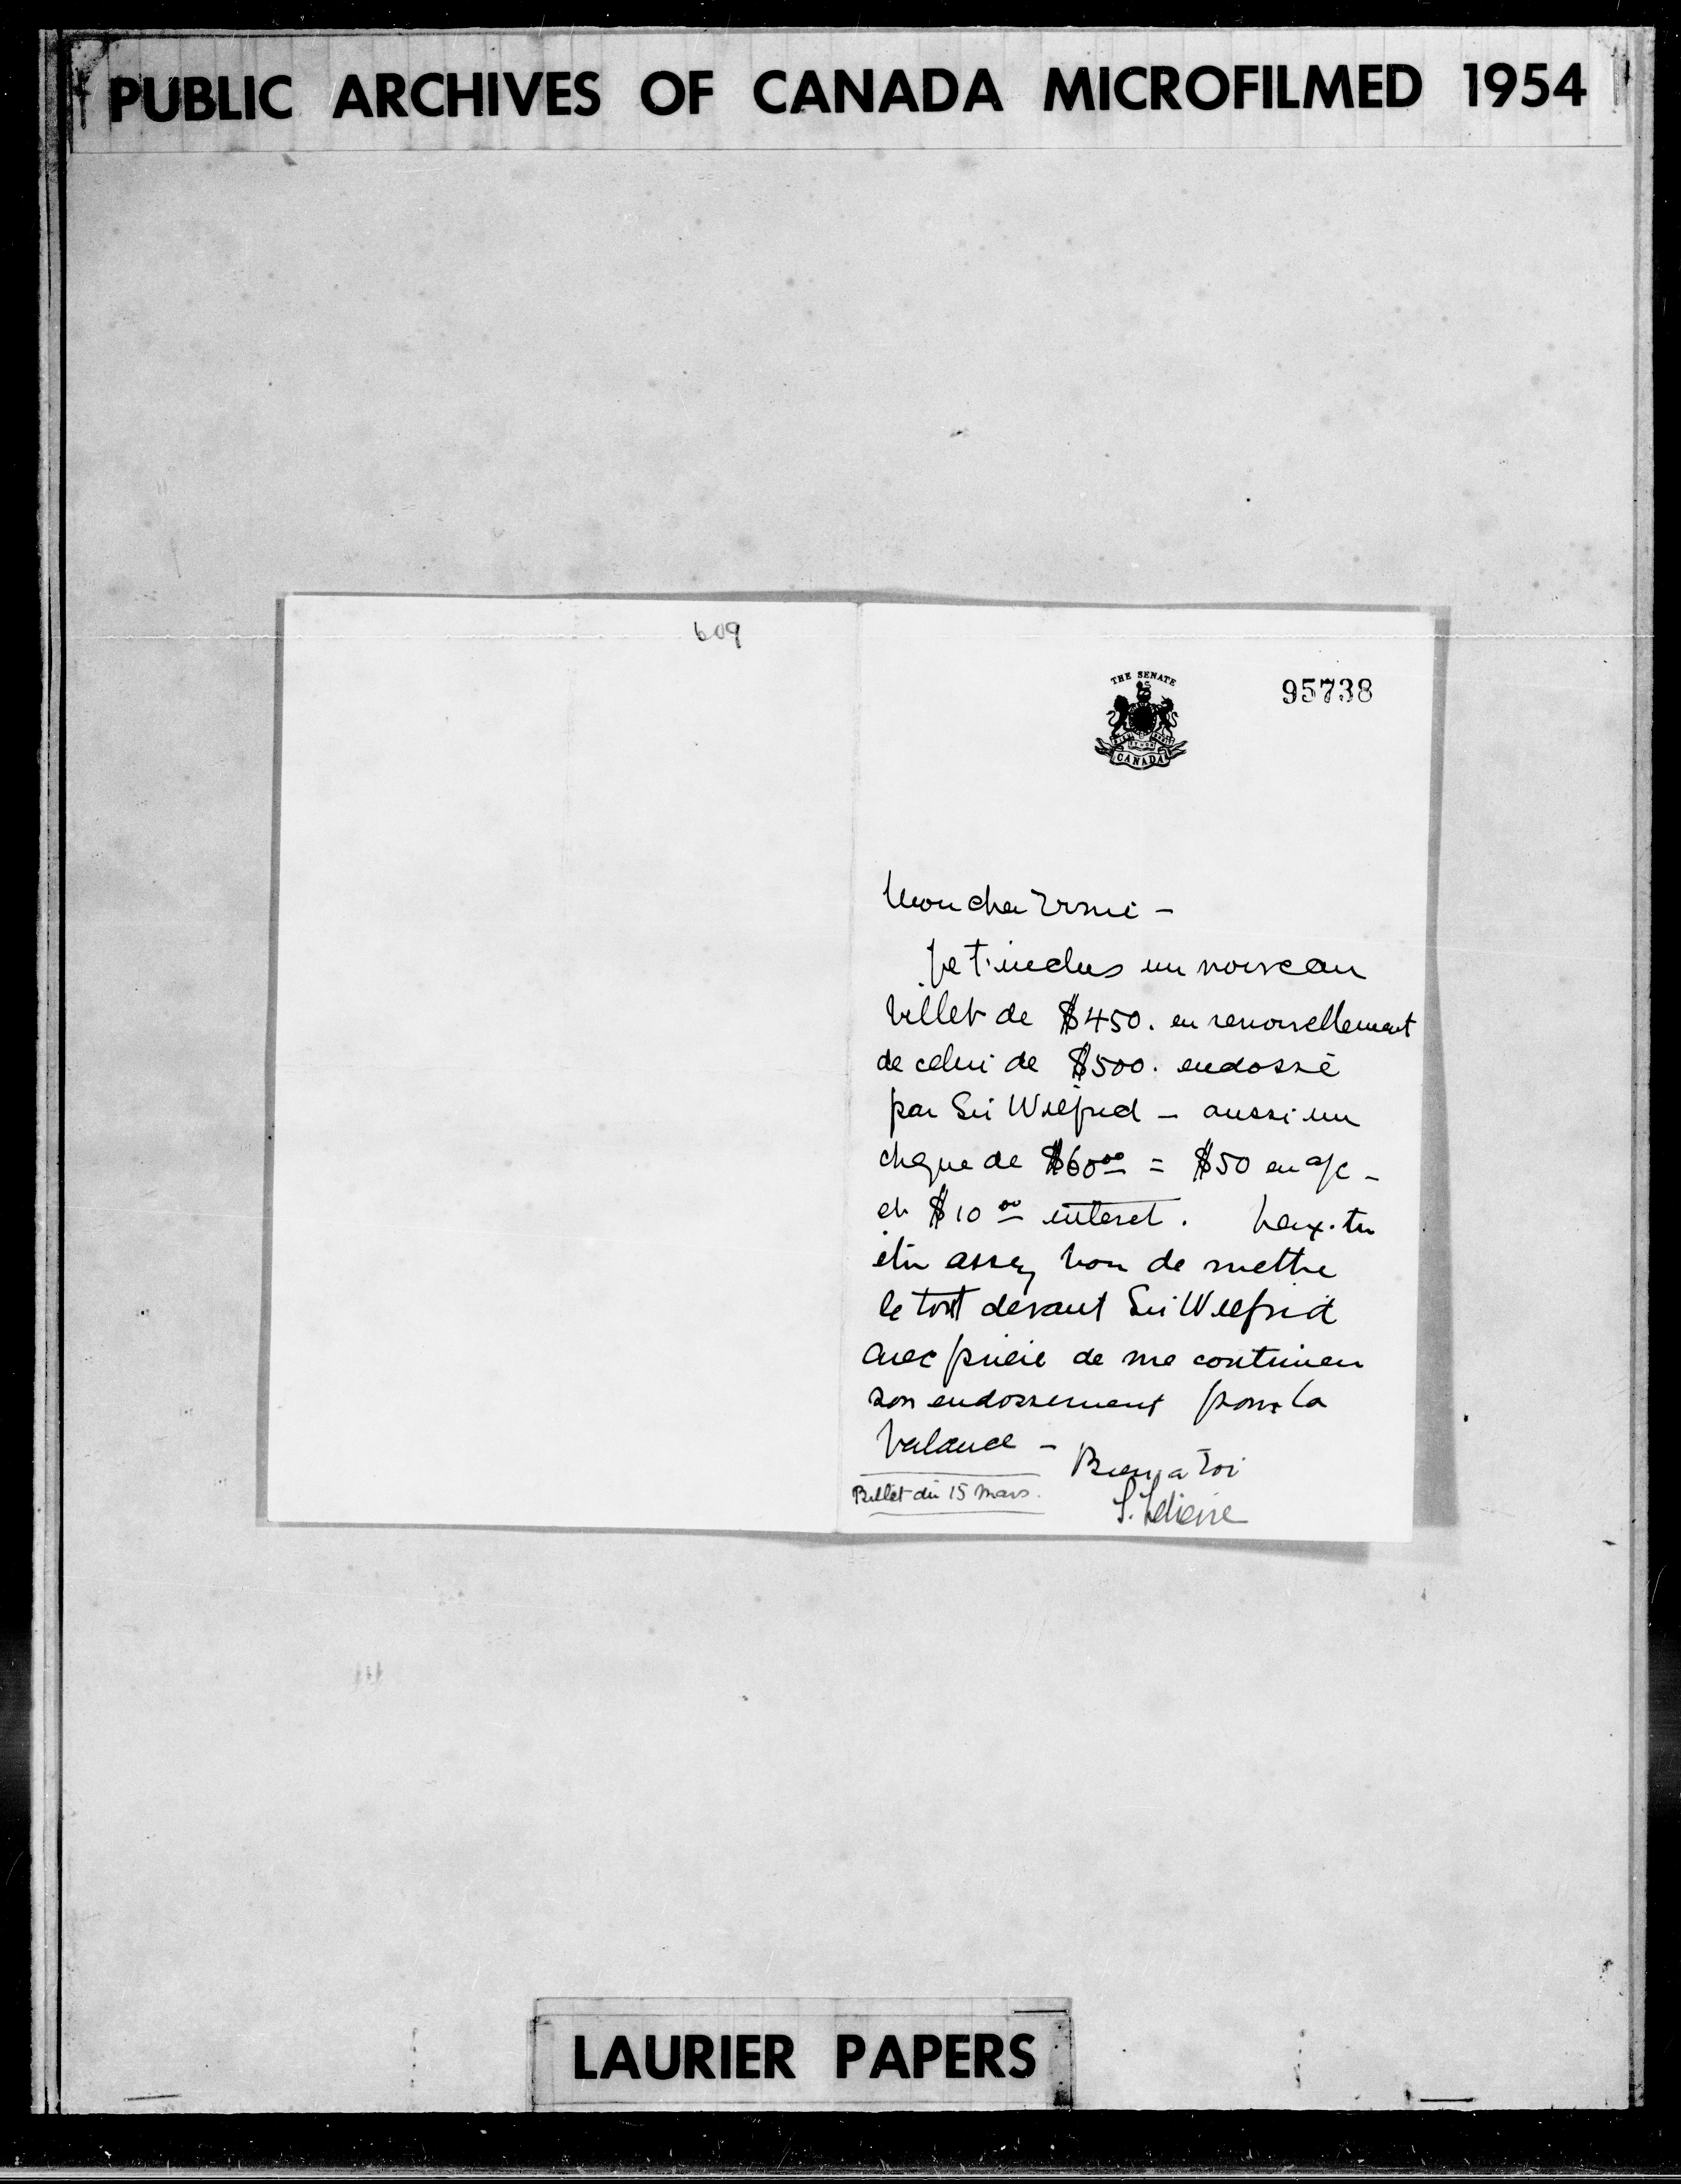 PUBLIC ARCHIVES OF CANADA MICROFILMED 1954
609
THE SENATE
CANADA
95738
Mon cher
Je t'inclus un nouveau
billet de $450. en renouvellement
de celui de $500. endossé
par Sir Wilfrid – aussi un
cheque de $60 00 = $50 en a/c –
et $10 00 interet. Veux-tu
être assez bon de mettre
le tout devant Sir Wilfrid
avec prière de me continuer
son endossement pour la
balance –
Bien à toi
Billet du 15 Mars.
LAURIER PAPERS